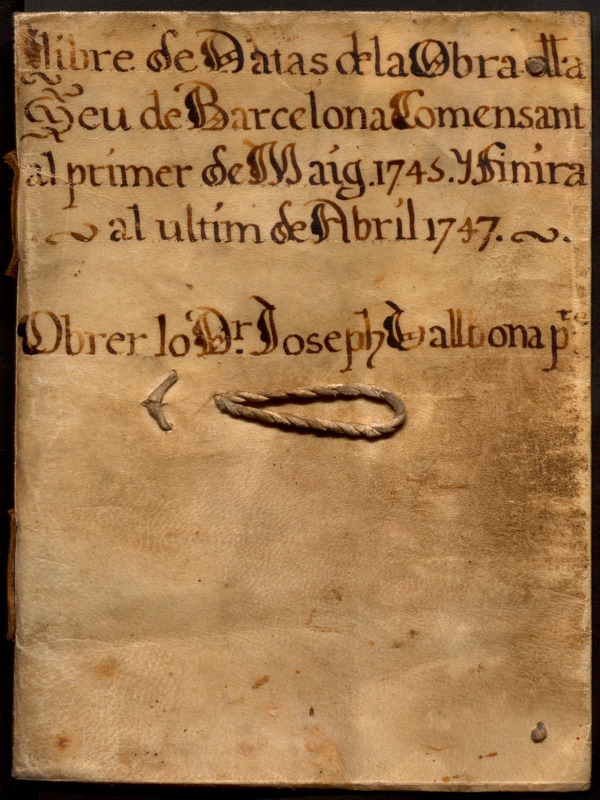 Llibre de Datas de la Obra dlla
Seu de Barcelona Comensant
al primer de Maig. 1745. Y finira
al ultim de Abril 1747.
Obrer lo Dr. Joseph Vallbona pr.